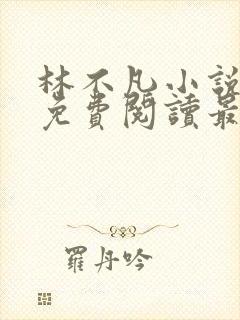 林不凡小說
免費閱讀最
羅丹吟